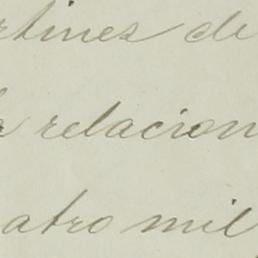 rtines de
a relacion
atro mil